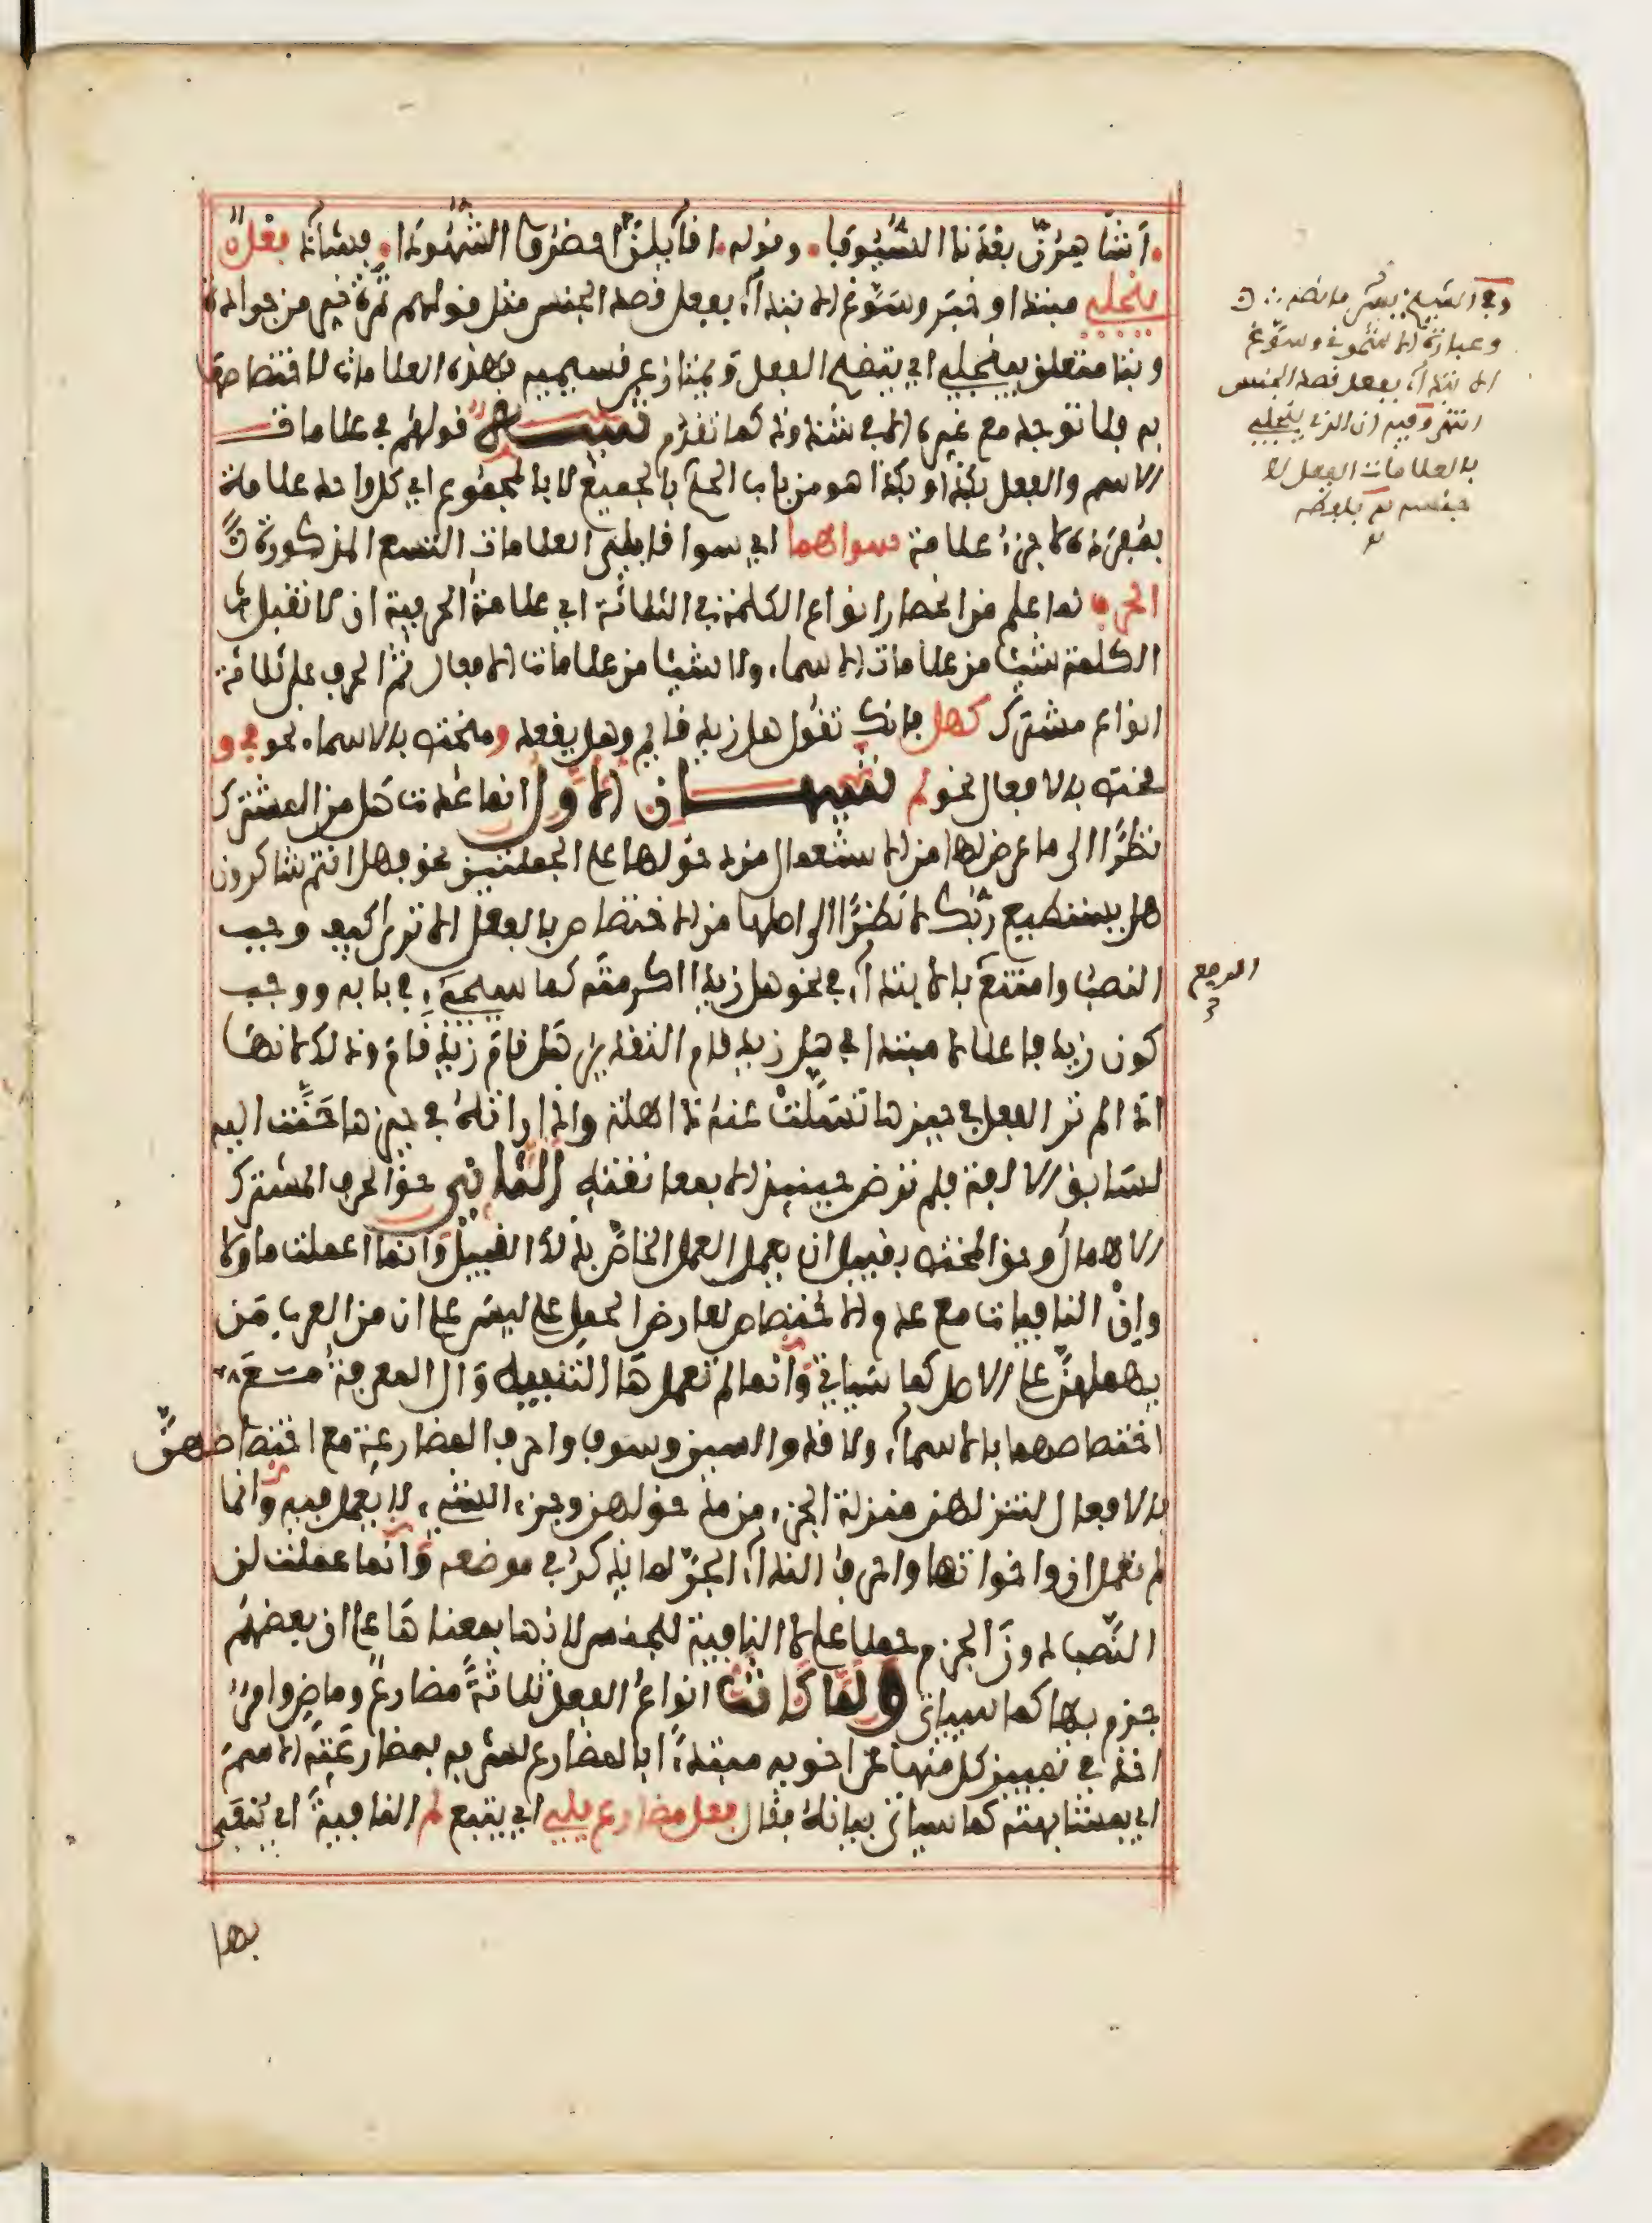 أشاهرن بعدنا السيوفا وقوله اقائلن احضروا الشهودا فشاذ فعل
ينجلي مبتدا وخبر وسوغ الابتداء بفعل قصد الجنس مثل قولهم تمرة خير من جرادة
وبتا متعلق بينجلي اي يتضح الفعل ويمتاز عن قسيميه بهذه العلامات لاختصاصها
به فلا توجد مع غيره الا في شذوذ كما تقدم تنبيه قولهم في علامات
الاسم والفعل بكذا وبكذا هو من باب الحكم بالجميع لا بالمجموع اي كل واحد علامة
بمفرده لا جزء علامة سواهما اي سوا قابلي العلامات التسع المذكورة
الحرف لما علم من انحصار انواع الكلمة في الثلاثة اي علامة الحرفية ان لا تقبل
الكلمة شيئا من علامات الاسماء ولا شيئا من علامات الافعال ثم الحرف على ثلاثة
انواع مشترك كهل فانك تقول هل زيد قائم وهل يقعد ومختص بالاسماء نحو في و
مختص بالافعال نحو لم تنبيهان الاول انما عدت هل من المشترك
نظرا الى ما عرض لها من الاستعمال من دخولها على الجملتين نحو فهل انتم شاكرون
هل يستطيع ربك لا نظرا الى اصلها من الاختصاص بالفعل الا ترى كيف وجب
النصب وامتنع بالابتداء في نحو هل زيدا اكرمته كما سيجيء في بابه ووجب
كون زيد فاعلا لا مبتدا في هل زيد قام التقدير هل قام زيد قام وذلك لانها
اذا لم تر الفعل في حيزها تسلت عنه ذاهلة وان راته في حيزها حنت اليه
لسابق الالفة فلم ترض حينئذ الا بمعانقته الثاني حق الحرف المشترك
الاهمال وحق المختص بقبيل ان يعمل العمل الخاص بذلك القبيل وانما اعملت ما ولا
وان النافيات مع عدم الاختصاص لعارض الحمل على ليس على ان من العرب من
يهملهن على الاصل كما سياتي وانما لم تعمل ها التنبيه وال المعرفة مع
اختصاصهما بالاسماء ولا قد والسين وسوف واحرف المضارعة مع اختصاصهن
بالافعال لتنزلهن منزلة الجزء من مدخولهن وجزء الشيء لا يعمل فيه وانما
لم تعمل ان واخواتها واحرف النداء الجر لما يذكر في موضعه وانما عملت لن
النصب دون الجزم حملا على لا النافية للجنس لانها بمعناها على ان بعضهم
جزم بها كما سياتي ولما كانت انواع الفعل ثلاثة مضارع وماض وامر
اخذ في تمييز كل منها عن اخويه مبتدءا بالمضارع لشرفه بمضارعته الاسم
اي بمشابهته كما سياتي بيانه فقال فعل مضارع يلي اي يتبع لم النافية اي ينفى
بها
وفي الشيخ يس ما نصه
وعبارة الاشموني وسوغ
الابتداء بفعل قصد الجنس
انتهى وفيه ان الذي ينجلي
بالعلامات الفعل لا
جنسه بلفظه
الرفع